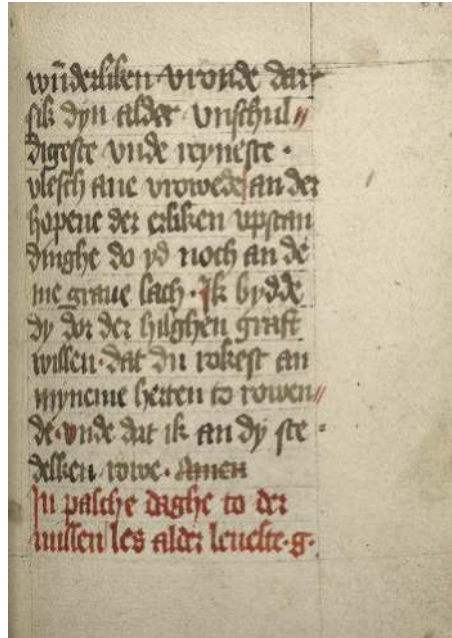 wūderliken vroude dar
sik dyn alder vnschul//
digeste vnde reyneste ·
vlesch ane vrowede an der
hopene der erliken upstan
dinghe do yd noch an de
me graue lach · Ik bydde
dy dor der hilghen graft
willen · dat du rokest an
myneme herten to rowen//
de · vnde dat ik an dy ste -
deliken rowe · Amen
In pasche daghe to der
missen les alder leueste · g ·